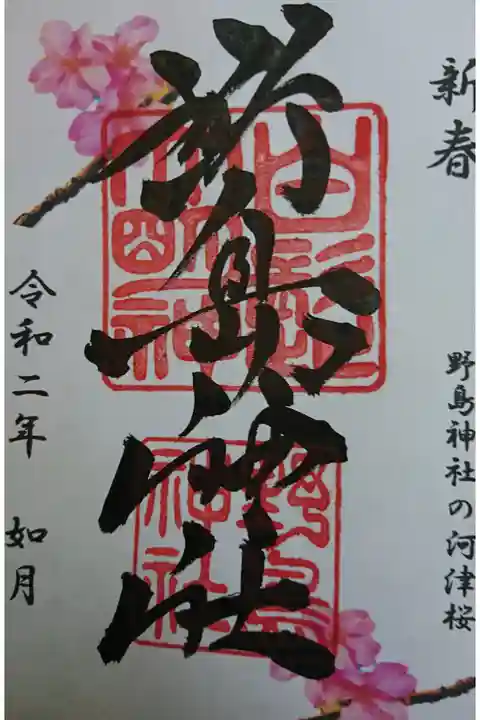 新春
野島神社の河津桜
野島神社
令和二年 如月